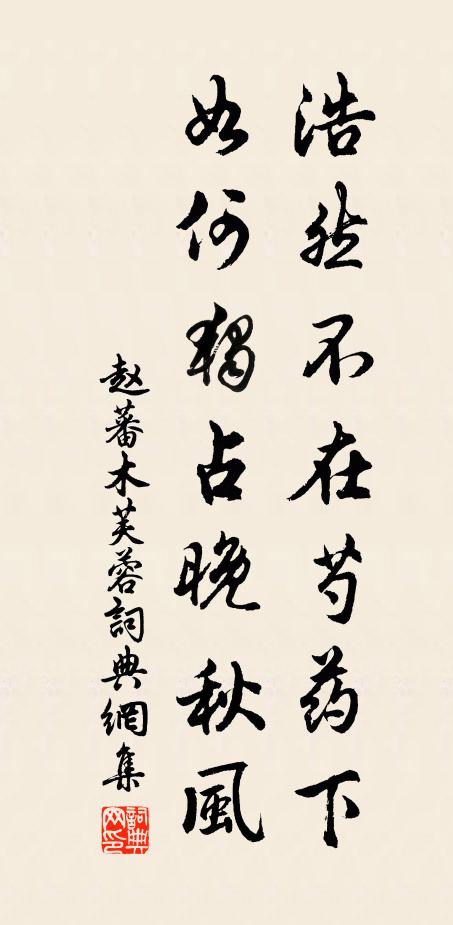 浩然不在芍药下
如何独占晚秋風
赵蕃木芙蓉詞典網集
詞典網印